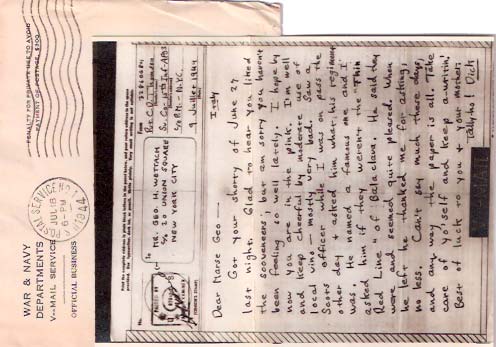 PENALTY FOR PRIVATE USE TO AVOID
PAYMENT OF POSTAGE, $300
POSTAL SERVICE NO. 1
JUL 18
6 PM
1944
WAR & NAVY
DEPARTMENTS
V-MAIL SERVICE
OFFICIAL BUSINESS
Print the complete address in plain block letters in the panel below, and your return address in the space provided.
No.
To
MR. GEO. H. WETTACH
% 20 UNION SQUARE
NEW YORK CITY
From
Pvt. C. D.
32860684
Sv. Co. 4th Inf. A.P.O.
% P.M. - N.Y.C.
9 Juillet 1944
PASSED BY
Italy
Dear Marse Geo —
Got your shorty of June 27
last night. Glad to hear you liked
the sooveneers, but am sorry you haven't
been feeling so well lately. I hope by
now you are in the pink. I'm well
and keep cheerful by moderate use of
local vino — mostly very bad. Saw a
Scots officer while I was on pass the
other day & asked him what his regiment
was. He named a famous one and I
asked him if they weren't the "Thin
Red Line" of Balaclava. He said they
were and seemed quite pleased. When
he left he thanked me for asking,
no less. Can't say much these days,
and any way the paper is all. Take
care of yo'self and keep a-writin'.
Best of luck to you & your mother.
Tally ho! Dick
V-MAIL